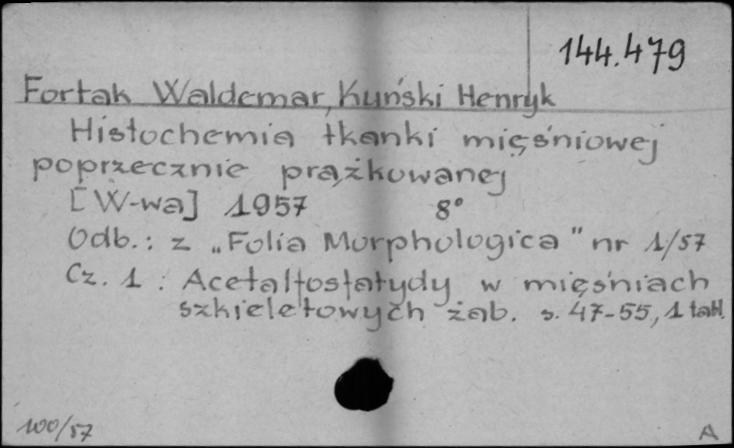 144.479
Fortak Waldemar, Kuński Henryk
Histochemia tkanki mięśniowej
poprzecznie prążkowanej
[W-wa] 1957 8°
Odb.: z „Folia Morphologica" nr 1/57
Cz. 1 : Acetalfosfatydy w mięśniach
szkieletowych żab. s. 47-55, 1 tabl.
100/57
A